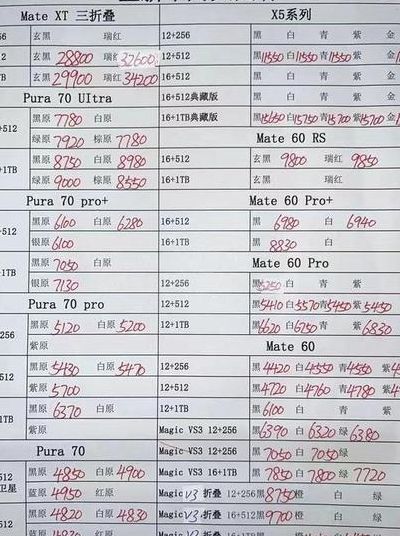 Mate XT 三折叠
256 玄黑 瑞红
512 玄黑 28800 瑞红 32600
1TB 玄黑 29900 瑞红 34200
Pura 70 Ultra
+512 黑原 7780 白原
绿原 7920 棕原 7780
+1TB 黑原 8750 白原 8980
绿原 9000 棕原 8550
Pura 70 pro+
+512 黑原 6100 白原 6280
银原 6100
+1TB 黑原 7050 白原
银原 7130
Pura 70 pro
256 黑原 5120 白原 5200
紫原
512 黑原 5430 白原 5470
紫原 5700
1TB 黑原 6370 白原
紫原
Pura 70
512 黑原 4850 白原 4900
卫星 蓝原 4950 红原
512 黑原 4820 白原 4830
X5系列
12+256 黑 白 青 紫 金
12+512 黑 11550 白 11550 青 11550 紫 11550 金
16+512典藏版 黑 白 青 紫 金
16+1TB典藏版 黑 15650 白 15750 青 15700 紫 15700 金
Mate 60 RS
16+512 玄黑 9800 瑞红 9850
16+1TB 玄黑 瑞红
Mate 60 Pro+
16+512 黑 6980 白 6940
16+1TB 黑 8830 白
Mate 60 Pro
12+256 黑 5250 白 青 紫
12+512 黑 5410 白 5570 青 5450 紫 5450
12+1TB 黑 6620 白 6750 青 紫 6830
Mate 60
12+256 黑 4420 白 4550 青 4550 紫
12+512 黑 4720 白 4760 青 4780 紫
12+1TB 黑 6100 白 青 紫
Magic VS3 12+256 黑 6390 白 6320 绿 6380
Magic VS3 12+512 黑 7050 白 7050 绿
Magic VS3 16+1TB 黑 7850 白 7800 绿 7720
Magic V3 折叠 12+256 黑 8750 橙 白 绿
Magic V3 折叠 16+512 黑 9700 橙 白 绿